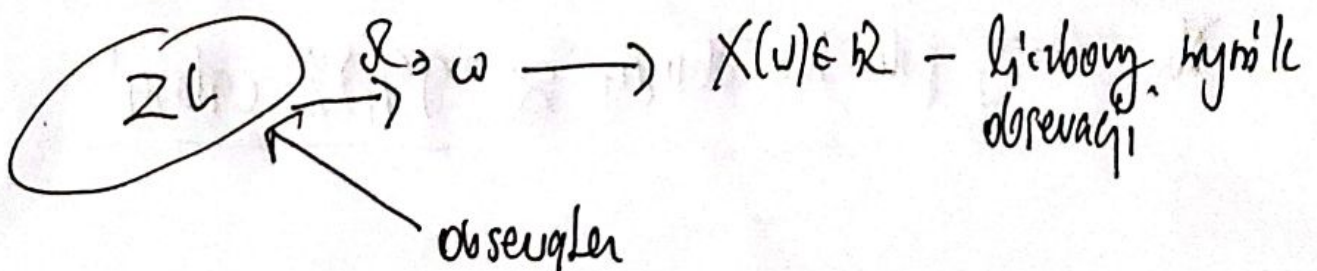 ZL Ω ∋ ω → X(ω) ∈ ℝ – liczbowy wynik
obserwacji
obserwator